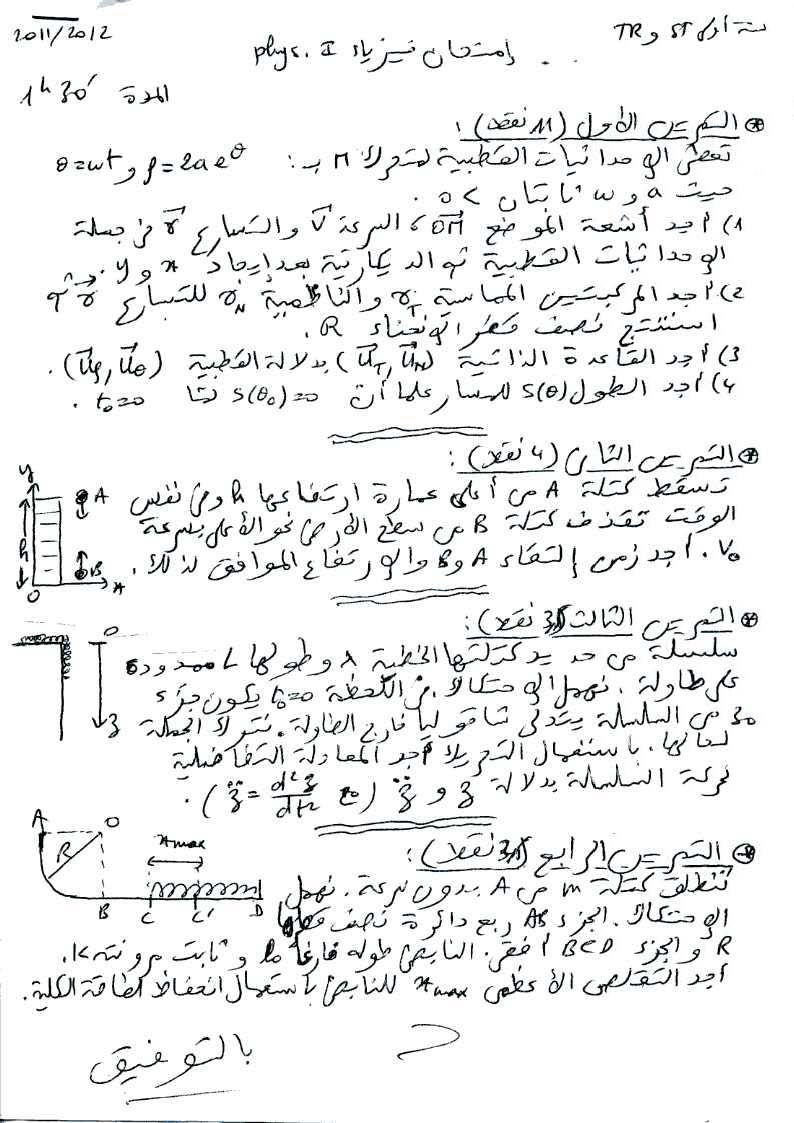 2011/2012
سنة أولى ST و TR
إمتحان فيزياء phys. I
المدة 1h 30'
⊛ التمرين الأول (11 نقطة) :
تعطى الإحداثيات القطبية لمتحرك M بـ : ρ=2ae^θ و θ=ωt
حيث a و ω ثابتان > 0 .
1) أوجد أشعة الموضع OM، السرعة V والتسارع γ في جملة
الإحداثيات القطبية ثم الديكارتية بعد إيجاد x و y.
2) أوجد المركبتين المماسية γT والناظمية γN للتسارع γ
استنتج نصف قطر الإنحناء R.
3) أوجد القاعدة الذاتية (UT, UN) بدلالة القطبية (Uρ, Uθ).
4) أوجد الطول S(θ) للمسار علما أن S(θ0)=0 لما t0=0 .
⊛ التمرين الثاني (4 نقط) :
تسقط كتلة A من أعلى عمارة ارتفاعها h وفي نفس
الوقت تقذف كتلة B من سطح الأرض نحو الأعلى بسرعة
V0. أوجد زمن إلتقاء A و B والإرتفاع الموافق لذلك.
y
A
h
B
O
x
⊛ التمرين الثالث (3 نقط) :
سلسلة من حديد كتلتها الخطية λ وطولها L ممدودة
على طاولة . نهمل الإحتكاك. في اللحظة t0=0 يكون جزء
z0 من السلسلة يتدلى شاقوليا خارج الطاولة. نترك الجملة
لحالها. باستعمال التحريك أوجد المعادلة التفاضلية
لحركة السلسلة بدلالة z و z̈ (z̈ = d²z/dt²) .
O
z
⊛ التمرين الرابع (3 نقط) :
تنطلق كتلة m من A بدون سرعة . نهمل
الإحتكاك. الجزء AB ربع دائرة نصف قطرها
R و الجزء BCD أفقي. النابض طوله فارغا l0 و ثابت مرونته k.
أوجد التقلص الأعظمي xmax للنابض باستعمال انحفاظ الطاقة الكلية.
A
O
R
xmax
B
C
C'
D
بالتوفيق